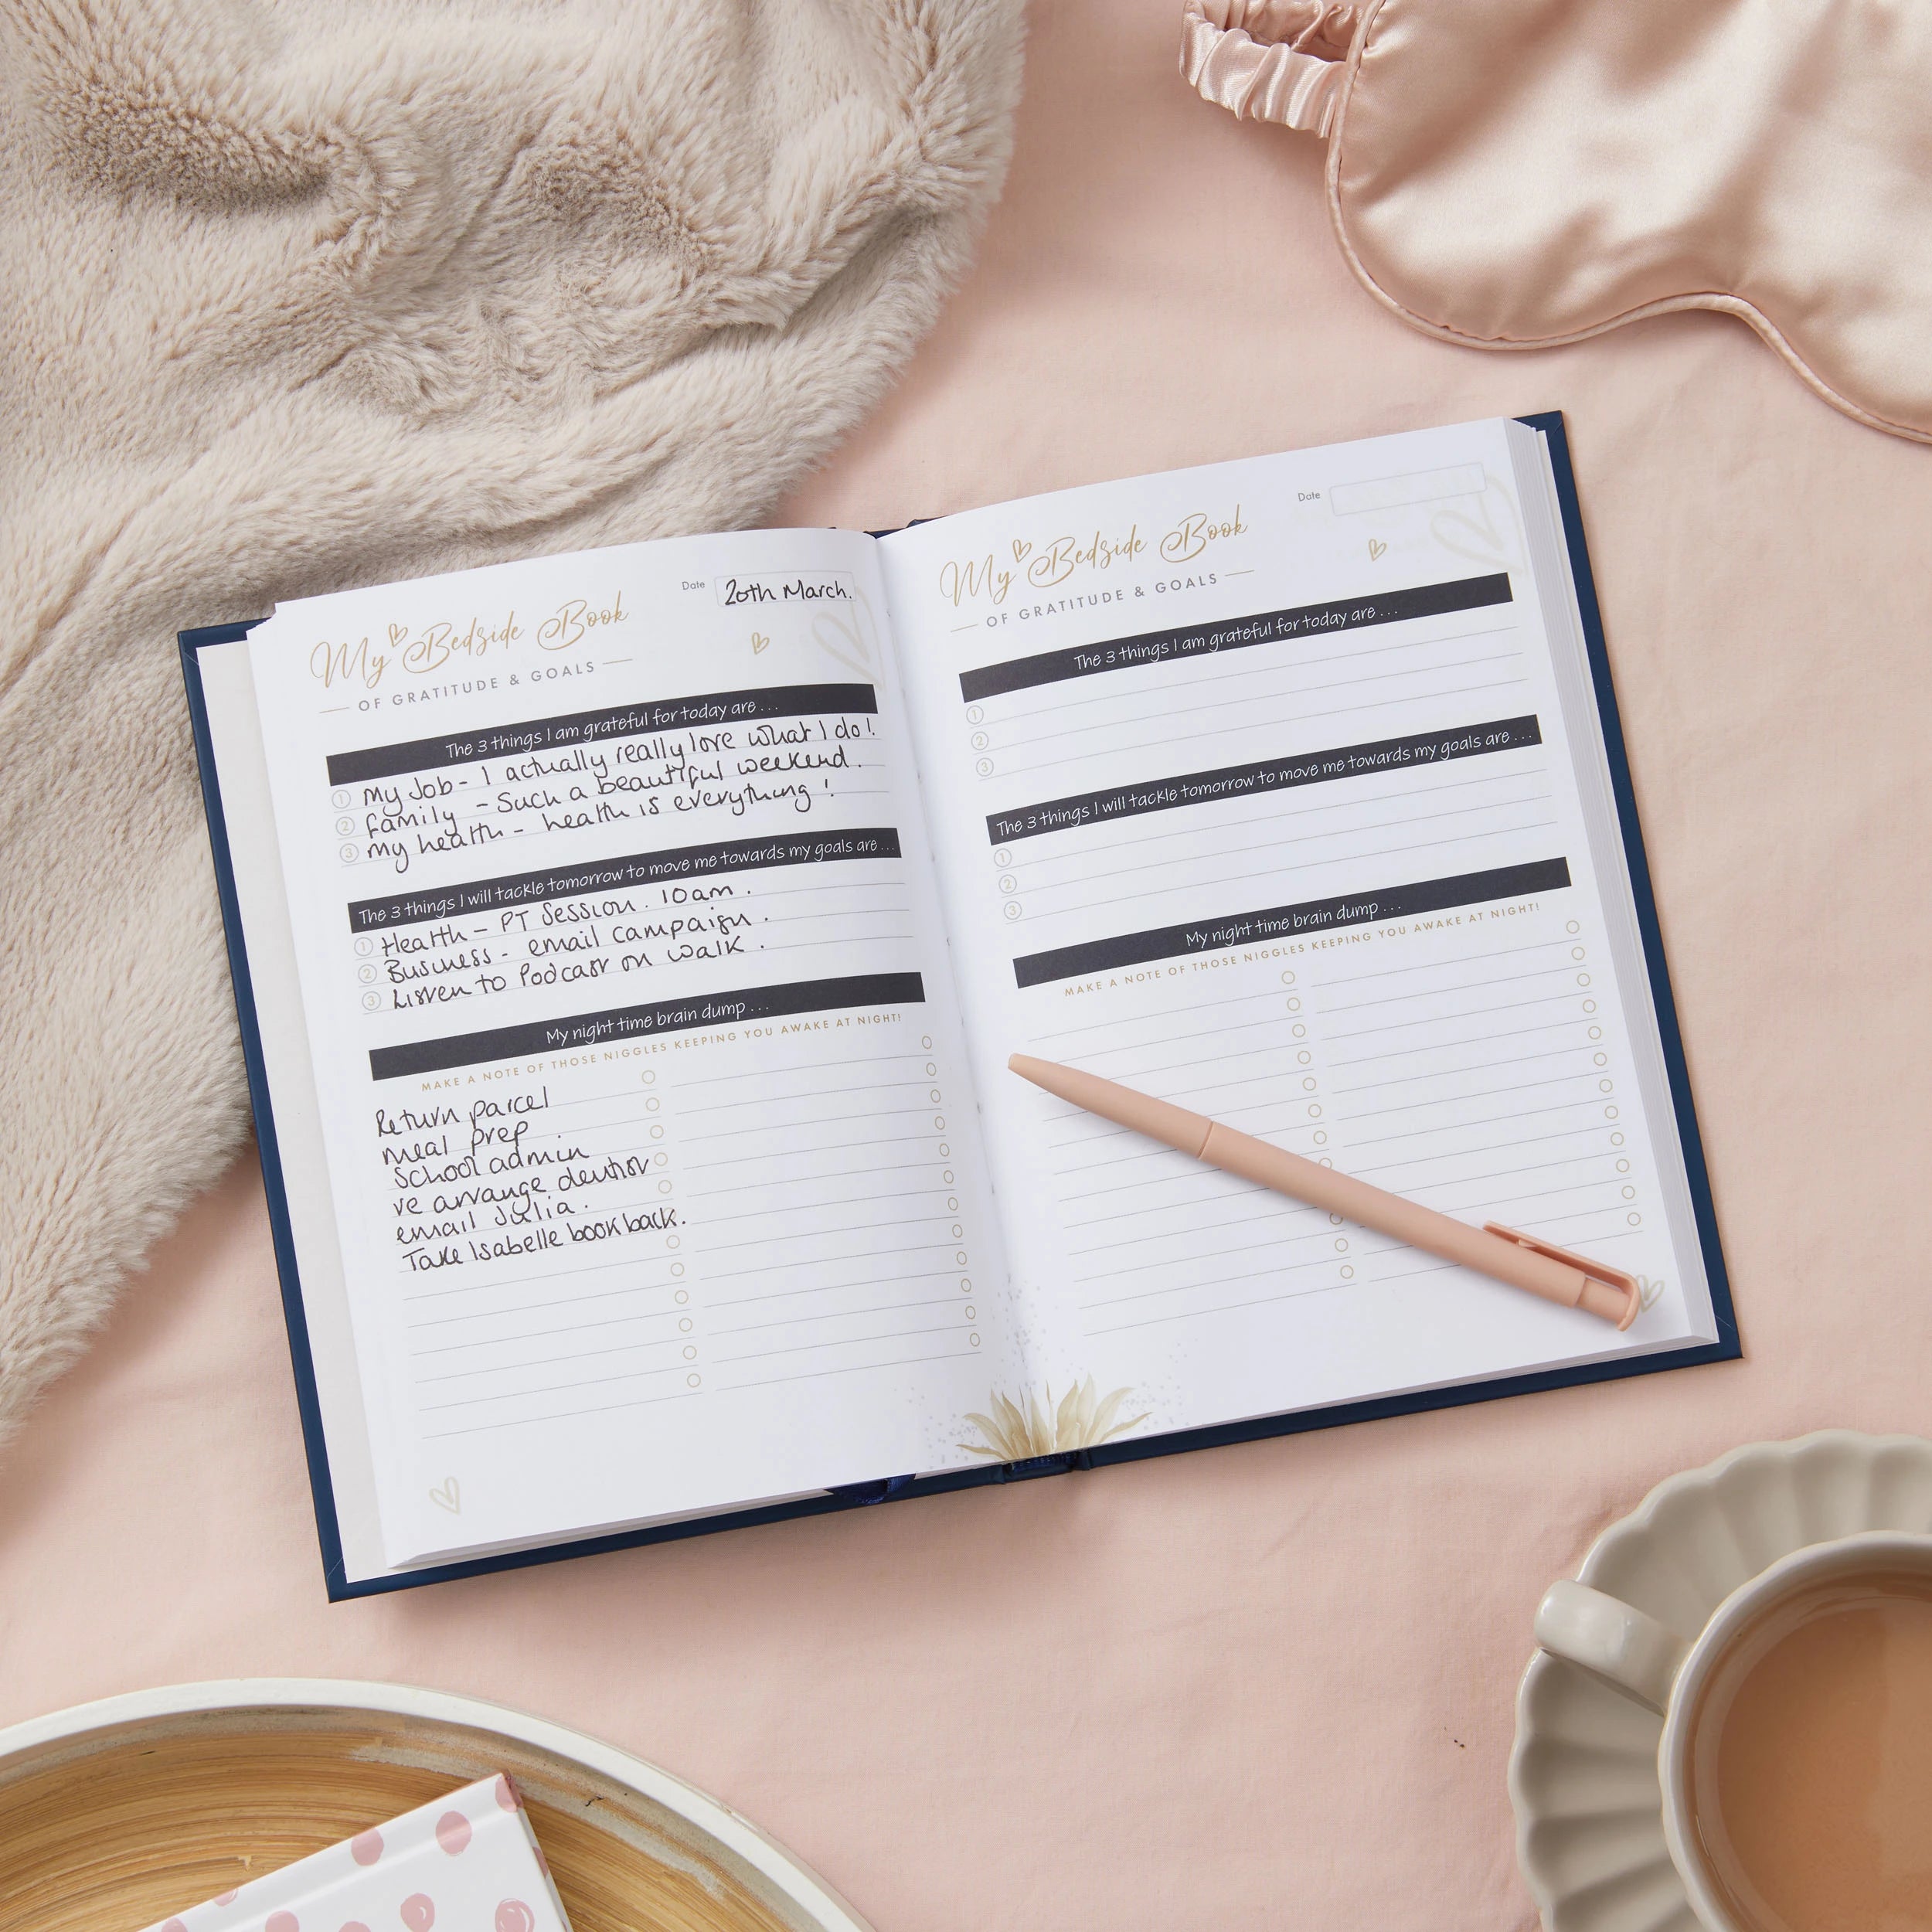 My Bedside Book
OF GRATITUDE & GOALS
Date 20th March.
The 3 things I am grateful for today are ...
1 My Job - I actually really love what I do!
2 family - Such a beautiful weekend.
3 my health - health is everything!
The 3 things I will tackle tomorrow to move me towards my goals are ...
1 Health - PT Session. 10am.
2 Business - email campaign.
3 Listen to Podcast on walk.
My night time brain dump ...
MAKE A NOTE OF THOSE NIGGLES KEEPING YOU AWAKE AT NIGHT!
Return parcel
meal prep
School admin
re arrange dentist
email Julia.
Take Isabelle book back.
My Bedside Book
OF GRATITUDE & GOALS
Date
The 3 things I am grateful for today are ...
1
2
3
The 3 things I will tackle tomorrow to move me towards my goals are ...
1
2
3
My night time brain dump ...
MAKE A NOTE OF THOSE NIGGLES KEEPING YOU AWAKE AT NIGHT!